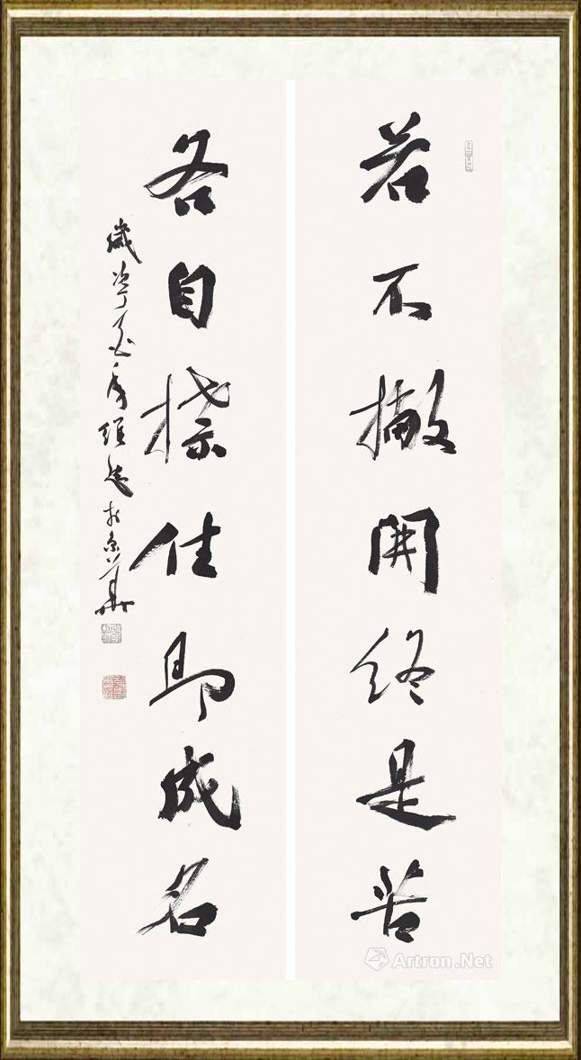 若不撇開終是苦
各自捺住即成名
歲次丁於京華
Artron.Net